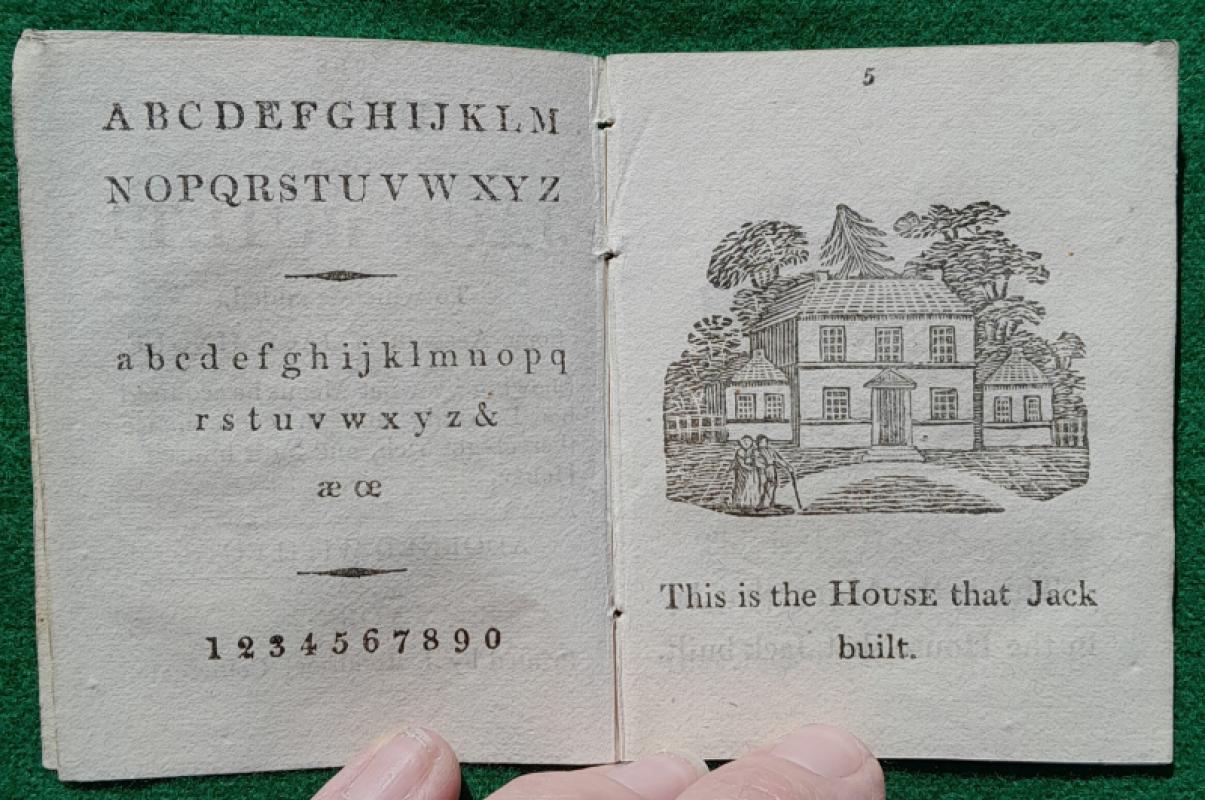 A B C D E F G H I J K L M
N O P Q R S T U V W X Y Z
a b c d e f g h i j k l m n o p q
r s t u v w x y z &
æ œ
1 2 3 4 5 6 7 8 9 0
5
This is the HOUSE that Jack
built.